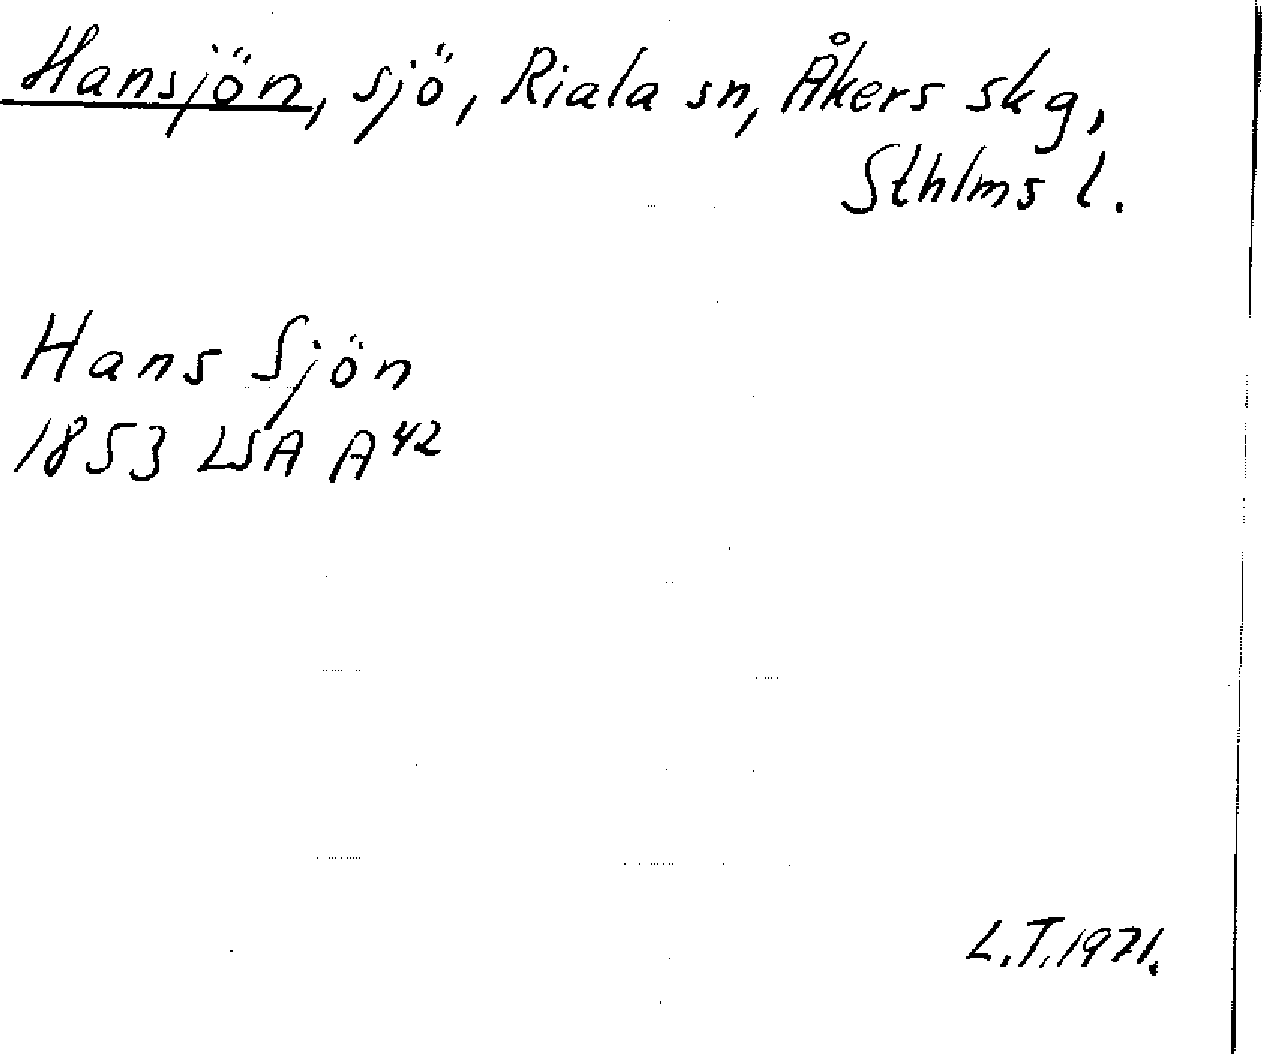 Hansjön, sjö, Riala sn, Åkers skg,
Sthlms l.
Hans Sjön
1853 LSA A⁴²
L.T. 1971.